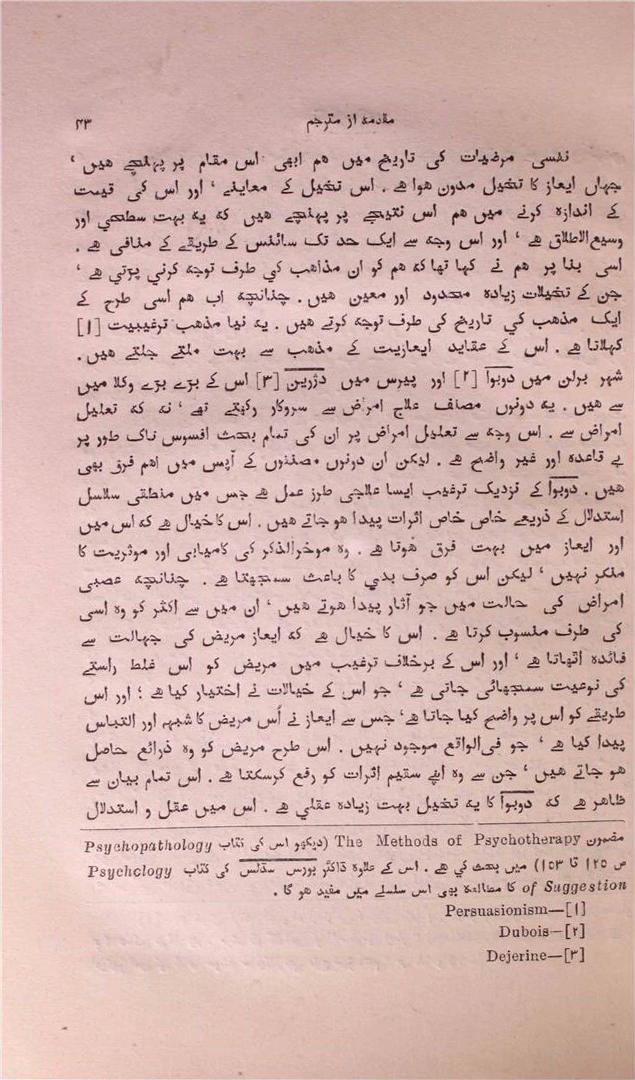 مقدمه از مترجم ۴۳
نفسی مرضیات کی تاریخ میں هم ابهی اس مقام پر پہنچے هیں ‘
جهاں ایعاز کا تخیل مدون هوا هے . اس تخیل کے معاینے ‘ اور اس کی قیمت
کے اندازه کرنے میں هم اس نتیجے پر پہنچے هیں که یه بہت سطحی اور
وسیع‌الاطلاق هے ‘ اور اس وجه سے ایک حد تک سائنس کے طریقے کے منافی هے .
اسی بنا پر هم نے کہا تها که هم کو ان مذاهب کی طرف توجه کرنی پڑتی هے ‘
جن کے تخیلات زیاده محدود اور معین هیں . چنانچه اب هم اسی طرح کے
ایک مذهب کی تاریخ کی طرف توجه کرتے هیں . یه نیا مذهب ترغیبیت [۱]
کہلاتا هے . اس کے عقاید ایعازیت کے مذهب سے بہت ملتے جلتے هیں .
شہر برلن میں دوبوآ [۲] اور پیرس میں دژرین [۳] اس کے بڑے بڑے وکلا میں
سے هیں . یه دونوں مصنف علاج امراض سے سروکار رکہتے تہے ‘ نه که تعلیل
امراض سے . اس وجه سے تعلیل امراض پر ان کی تمام بحث افسوس ناک طور پر
بے قاعده اور غیر واضح هے . لیکن ان دونوں مصنفوں کے آپس میں اهم فرق بہی
هیں . دوبوآ کے نزدیک ترغیب ایسا علاجی طرز عمل هے جس میں منطقی سلاسل
استدلال کے ذریعے خاص خاص اثرات پیدا هو جاتے هیں . اس کا خیال هے که اس میں
اور ایعاز میں بہت فرق هوتا هے . وه موخرالذکر کی کامیابی اور موثریت کا
منکر نہیں ‘ لیکن اس کو صرف بدی کا باعث سمجہتا هے . چنانچه عصبی
امراض کی حالت میں جو آثار پیدا هوتے هیں ‘ ان میں سے اکثر کو وه اسی
کی طرف منسوب کرتا هے . اس کا خیال هے که ایعاز مریض کی جہالت سے
فائده اٹہاتا هے ‘ اور اس کے برخلاف ترغیب میں مریض کو اس غلط راستے
کی نوعیت سمجہائی جاتی هے ‘ جو اس کے خیالات نے اختیار کیا هے ؛ اور اس
طریقے کو اس پر واضح کیا جاتا هے ‘ جس سے ایعاز نے اُس مریض کا شبہه اور التباس
پیدا کیا هے ‘ جو فی‌الواقع موجود نہیں . اس طرح مریض کو وه ذرائع حاصل
هو جاتے هیں ‘ جن سے وه اپنے سقیم اثرات کو رفع کرسکتا هے . اس تمام بیان سے
ظاهر هے که دوبوآ کا یه تخیل بہت زیاده عقلی هے . اس میں عقل و استدلال
مضمون The Methods of Psychotherapy (دیکہو اس کی کتاب Psychopathology
ص ۱۲۵ تا ۱۵۳) میں بحث کی هے . اس کے علاوه ڈاکٹر بورس سڈلس کی کتاب Psychology
of Suggestion کا مطالعه بہی اس سلسلے میں مفید هو گا .
Persuasionism—[۱]
Dubois—[۲]
Dejerine—[۳]